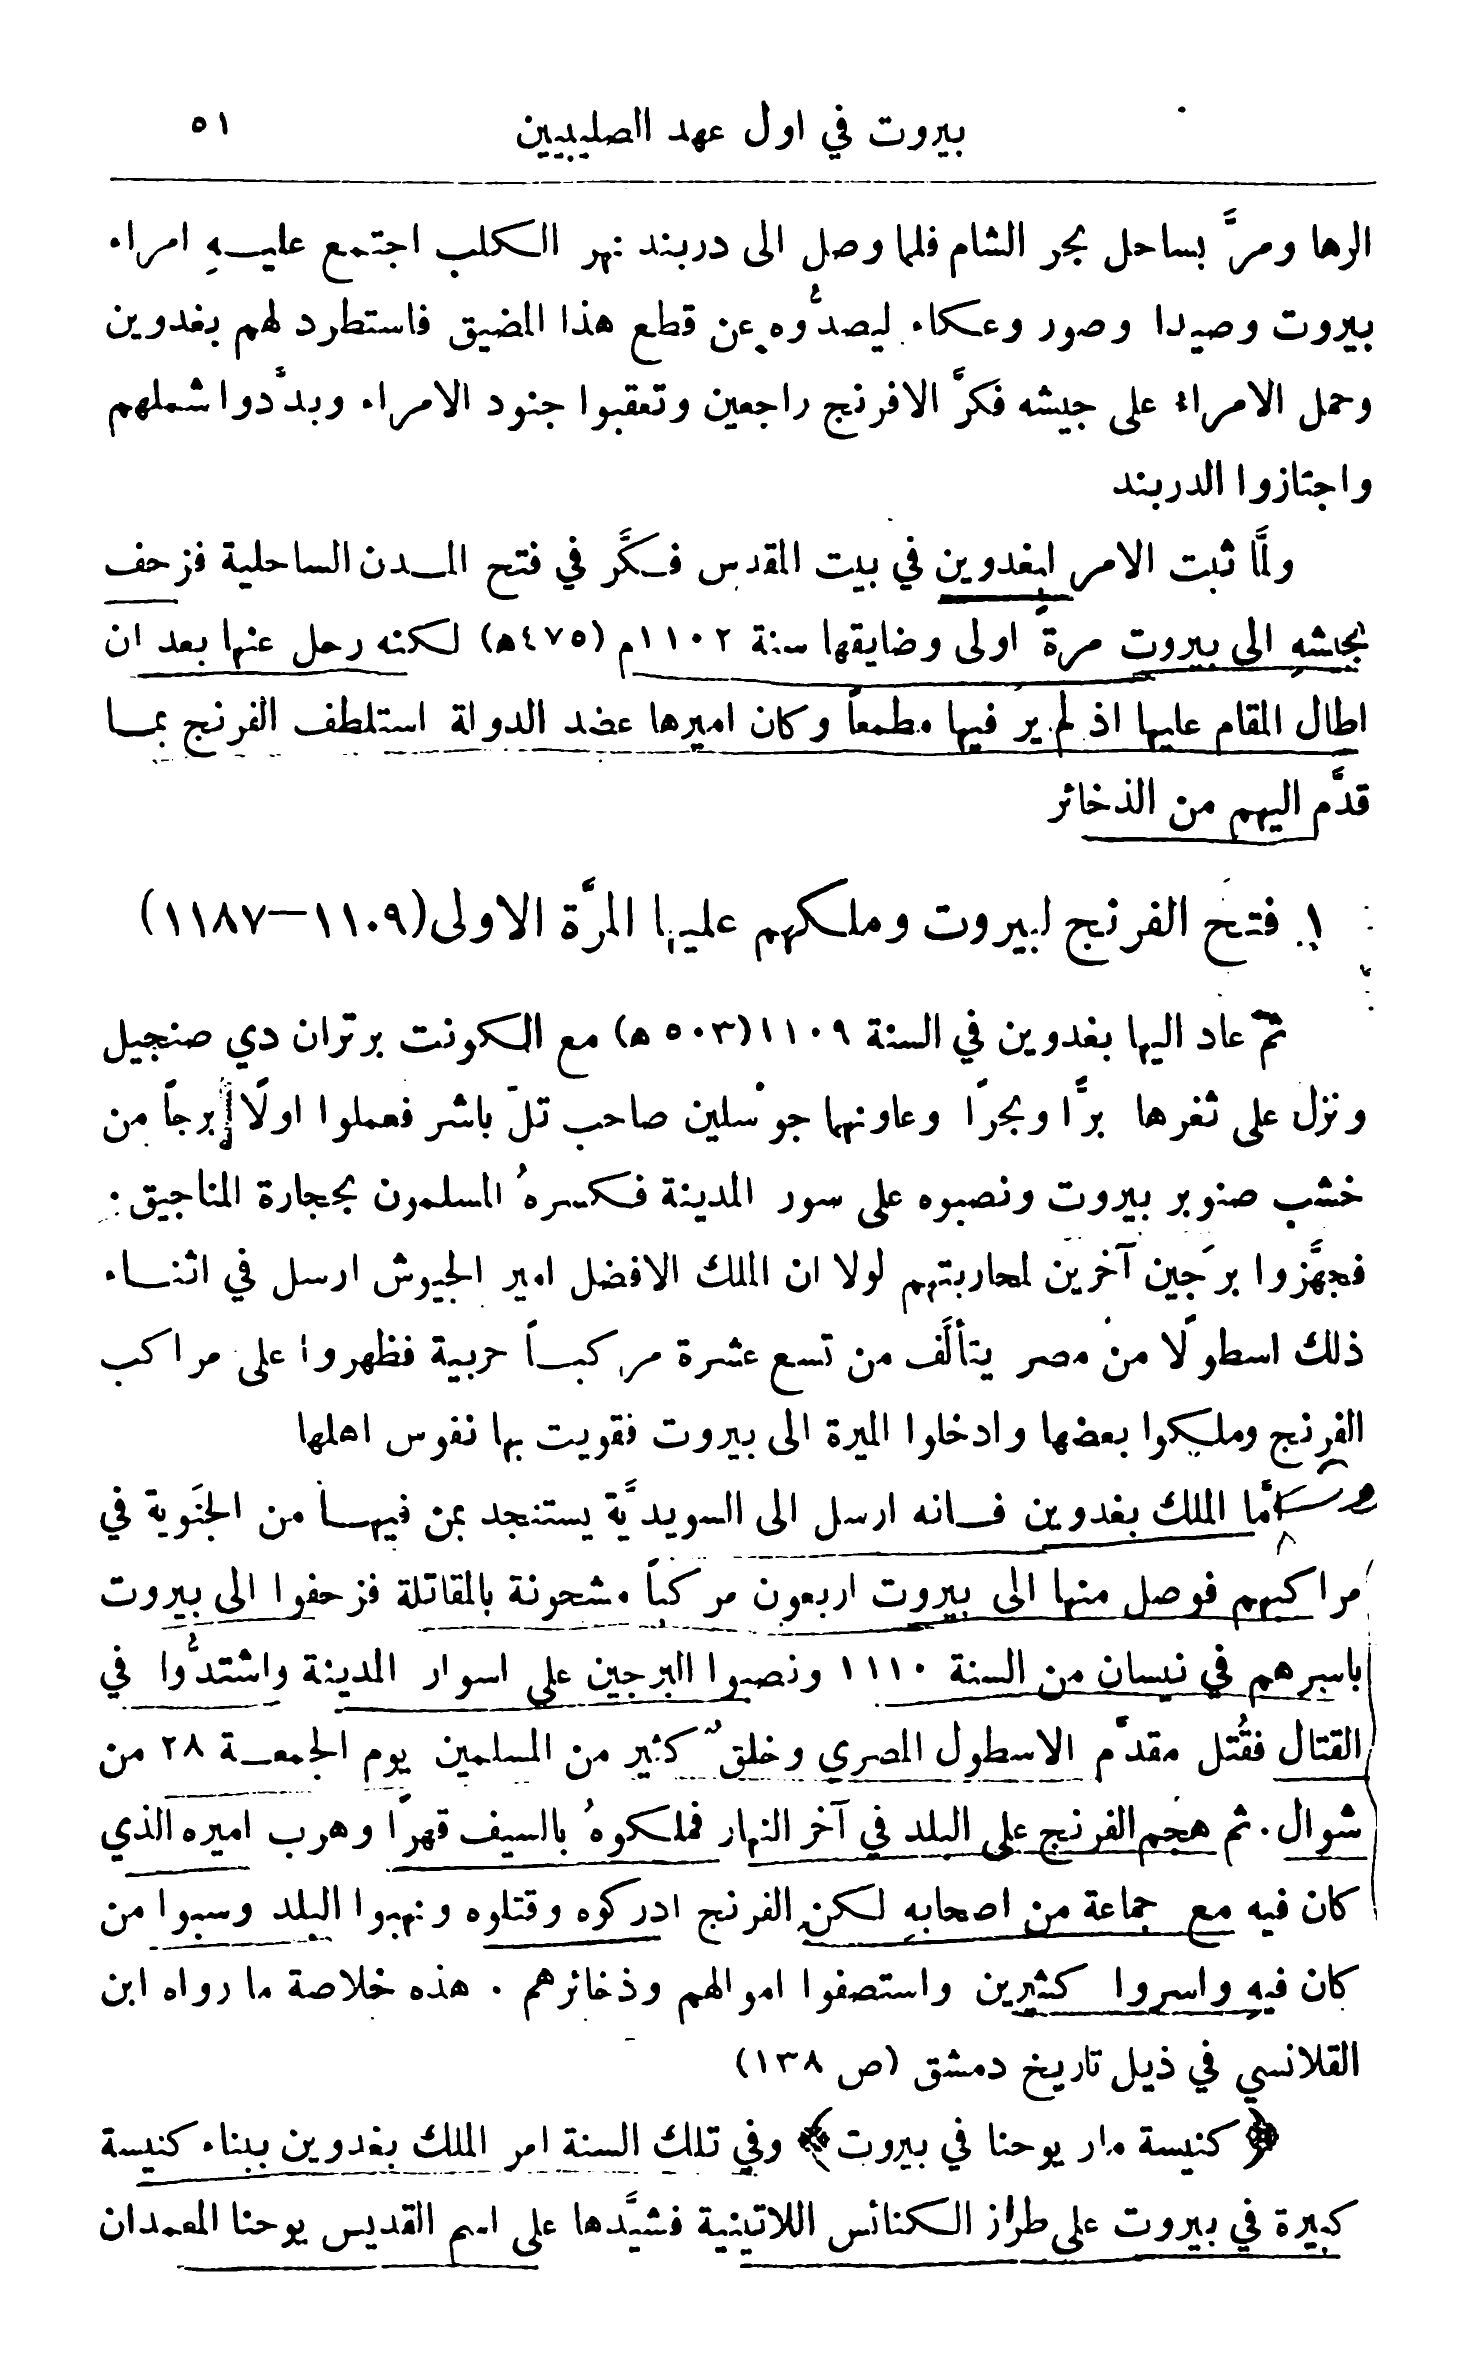 بيروت في اول عهد الصليبيين ٥١
الرها ومرَّ بساحل بحر الشام فلما وصل الى دربند نهر الكلب اجتمع عليهِ امراء
بيروت وصيدا وصور وعكاء ليصدُّوه عن قطع هذا المضيق فاستطرد لهم بغدوين
وحمل الامراء على جيشه فكرَّ الافرنج راجعين وتعقبوا جنود الامراء وبدَّدوا شملهم
واجتازوا الدربند
ولمَّا ثبت الامر لبغدوين في بيت المقدس فكَّر في فتح المدن الساحلية فزحف
بجيشهِ الى بيروت مرة اولى وضايقها سنة ١١٠٢م (٤٧٥ھ) لكنه رحل عنها بعد ان
اطال المقام عليها اذ لم ير فيها مطمعاً وكان اميرها عضد الدولة استلطف الفرنج بما
قدَّم اليهم من الذخائر
١. فتح الفرنج لبيروت وملكهم عليها المرَّة الاولى (١١٠٩–١١٨٧)
ثمَّ عاد اليها بغدوين في السنة ١١٠٩ (٥٠٣ ھ) مع الكونت برتران دي صنجيل
ونزل على ثغرها برًّا وبحرًا وعاونهما جوسلين صاحب تلّ باشر فعملوا اولًا برجاً من
خشب صنوبر بيروت ونصبوه على سور المدينة فكسرهُ المسلمون بحجارة المناجيق.
فجهَّزوا برجَين آخرَين لمحاربتهم لولا ان الملك الافضل امير الجيوش ارسل في اثناء
ذلك اسطولًا من مصر يتألَّف من تسع عشرة مركباً حربية فظهروا على مراكب
الفرنج وملكوا بعضها وادخلوا الميرة الى بيروت فقويت بها نفوس اهلها
امَّا الملك بغدوين فانه ارسل الى السويديَّة يستنجد بمن فيها من الجنَوية في
مراكبهم فوصل منها الى بيروت اربعون مركباً مشحونة بالمقاتلة فزحفوا الى بيروت
باسرهم في نيسان من السنة ١١١٠ ونصبوا البرجين على اسوار المدينة واشتدُّوا في
القتال فقُتل مقدَّم الاسطول المصري وخلقٌ كثير من المسلمين يوم الجمعة ٢٨ من
شوال. ثم هجم الفرنج على البلد في آخر النهار فملكوهُ بالسيف قهرًا وهرب اميره الذي
كان فيه مع جماعة من اصحابهِ لكن الفرنج ادركوه وقتلوه ونهبوا البلد وسبوا من
كان فيهِ واسروا كثيرين واستصفوا اموالهم وذخائرهم. هذه خلاصة ما رواه ابن
القلانسي في ذيل تاريخ دمشق (ص ١٣٨)
﴿كنيسة مار يوحنا في بيروت﴾ وفي تلك السنة امر الملك بغدوين ببناء كنيسة
كبيرة في بيروت على طراز الكنائس اللاتينية فشيَّدها على اسم القديس يوحنا المعمدان